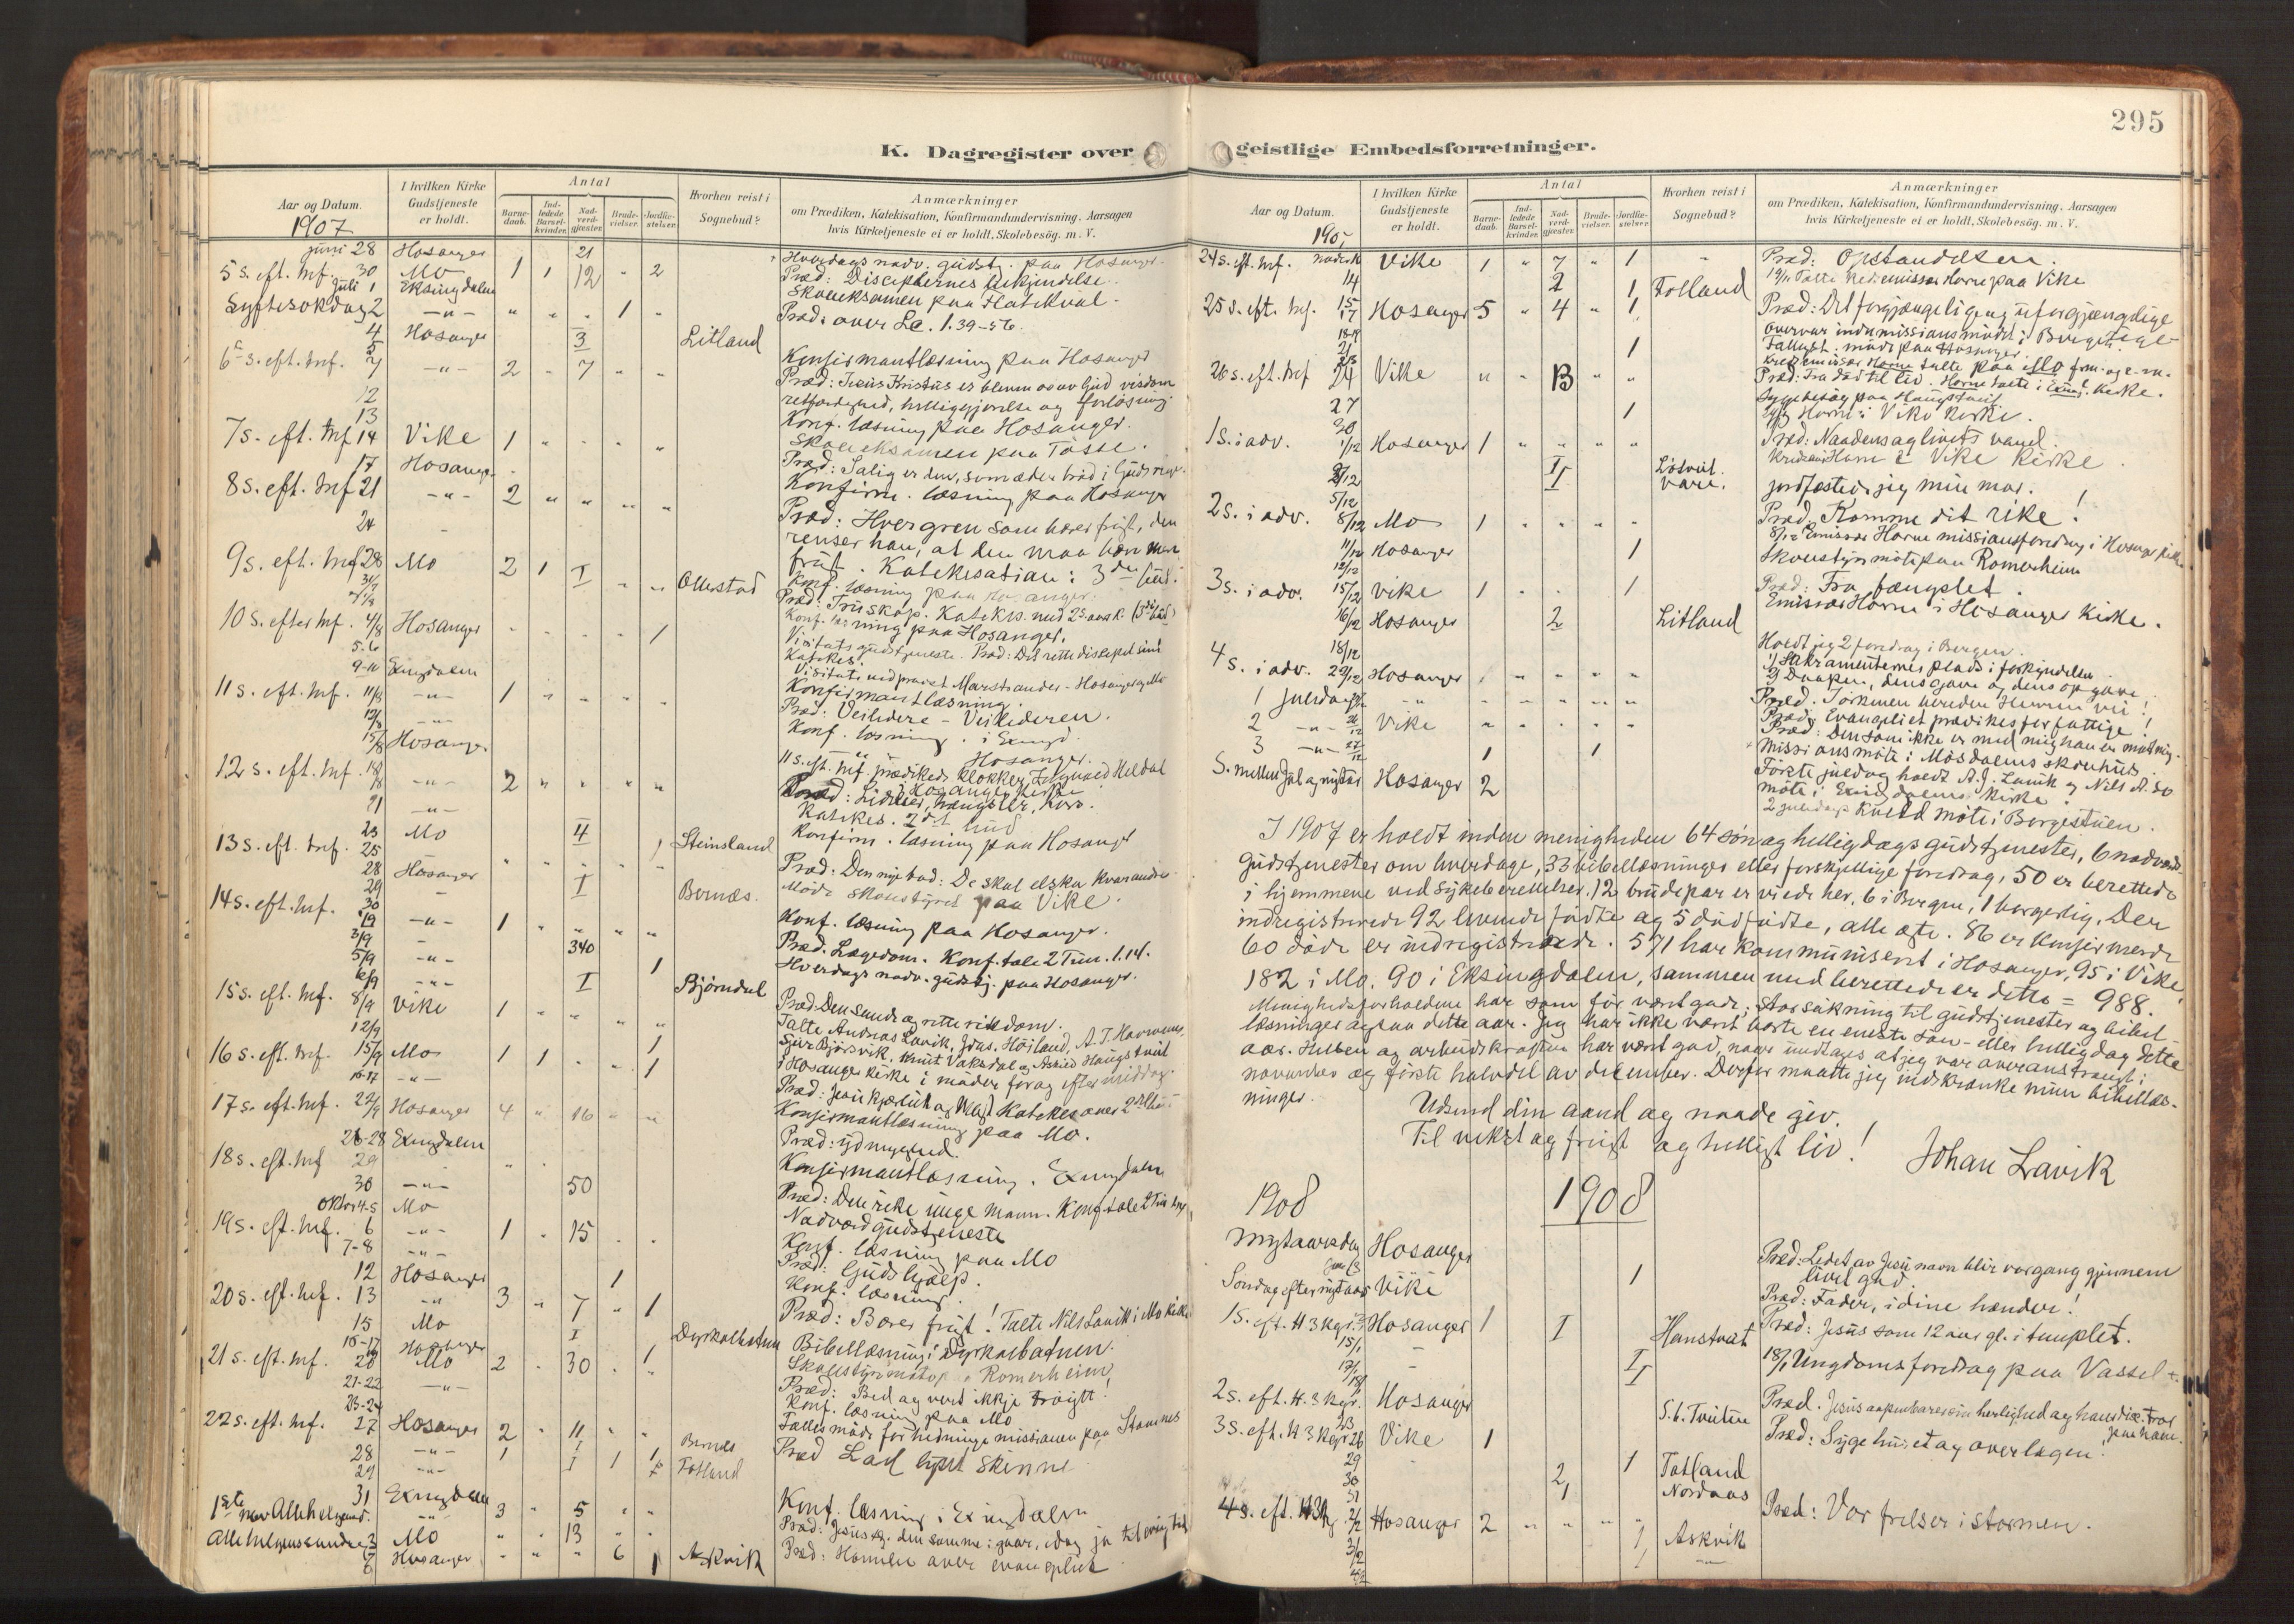 295
K. Dagregister over
Aar og Datum.
I hvilken Kirke
Gudstjeneste
er holdt.
Antal
Barne-
daab.
Ind-
ledede
Barsel-
kvinder.
Nad-
verd-
gjester.
Brude-
vielser.
Jordfæ-
stelser.
Hvorhen reist i
Sognebud?
Anmærkninger
om Prædiken, Katekisation, Konfirmandundervisning. Aarsagen
hvis Kirketjeneste ei er holdt. Skolebesøg. m. V.
1907
juni 28 Hosanger 21 Hverdags nadv. gudstj. paa Hosanger.
5 s. eft. trf. 30 Mo 1 1 12 " 2 Præd: Disciplernes bekjendelse.
Juli 1 Eksingdalen Skoleeksamen paa Flatekval.
Syftesokdag 2 -"- " " " 1 " Præd. over Lc. 1. 39-56.
4 Hosanger 3 Litland
5 Konfirmantlæsning paa Hosanger
6 s. eft. trf. 7 -"- 2 " 7 " " Præd: Jesus Kristus er bleven os av Gud visdom
retfærdighed, helliggjørelse og forløsning.
12 Konf. læsning paa Hosanger.
13 Skoleeksamen paa Tosse.
7 s. eft. trf 14 Vike 1 " " " " Præd: Salig er den, som æder brød i Guds rige.
17 Hosanger Konfirm. læsning paa Hosanger
8 s. eft. trf 21 -"- 2 " " " " Præd: Hver gren som bærer frugt, den
renser han, at den maa bære mere
frugt. Katekisation: 3die bud.
24 Konf. læsning paa Hosanger.
9 s. eft. trf 28 Mo 2 1 I " " Ollestad Præd: Truskap. Katekis. med 2s. aarsk. (3die bud)
Konf. læsning paa Hosanger.
10 s. efter trf. 4/8 Hosanger " " " " 1 Visitatsgudstjeneste. Præd: Det rette discipelsind
Katekes.
5-6 Visitats ved provst Marstrander - Hosanger og Mo
9-10 Exingdalen Konfirmantlæsning.
11 s. eft. trf. 11/8 -"- 1 " " " " Præd: Veiledere - Veilederen.
12/8 -"- Konf. læsning i Exingd.
15/8 Hosanger -"- Hosanger.
11 s. eft. trf. prædikede klokker Ingvald Heldal
i Hosanger kirke
12 s. eft. trf. 18/8 -"- 2 " " " " Præd: Lidelser, trængsler, kors.
Katekes. 2det bud
21 -"- Konfirm. læsning paa Hosanger
23 Mo 4 1 Steinsland
13 s. eft. trf. 25 Præd: Den nye bud: De skal elska kvarandre
28 Hosanger Møde skolestyret paa Vike.
29 I Bernæs.
30 Konf. læsning paa Hosanger.
14 s. eft. trf. 1/9 -"- 1 " 340 " " Præd. Lægedom. Konf. tale 2 Tim. 1.14.
3/9 Hverdags nadv. gudstj. paa Hosanger.
5/9 -"- 1
6/9 -"- I Bjørndal
15 s. eft. trf. 8/9 Vike 1 " " " " Præd. Den sande og rette rikdom.
12/9 Talte Andreas Lavik, Johs. Høiland, A. T. Havnevik
Sjur Bjørsvik, Knut Vaksdal og Askild Haugstvet
i Hosanger kirke i møder for og eftermiddag.
16 s. eft. trf. 15/9 Mo 1 1 " " 1 Præd: Jesu kjærlik og Magt Katekes over 2det bud
16-17 -"- 1 Konfirmantlæsning paa Mo.
17 s. eft. trf. 22/9 Hosanger 4 " 16 " " Præd: Ydmyghed.
26-28 Exingdalen Konfirmantlæsning. Exingdalen
18 s. eft. trf 29 Præd: Den rike unge mann. Konf. tale 2 Tim
30 -"- 50 Nadverdgudstjeneste
Oktbr 4-5 Mo Konf. læsning paa Mo
19 s. eft. trf. 6 -"- 1 " 15 " " Præd: Guds hjælp.
7-8 -"- Konf. læsning.
12 Hosanger 1
20 s. eft. trf. 13 -"- 3 " 7 " 1 Præd: Bærer frugt! Talte Nils Lavik i Mo kirke
15 Mo I Dyrkolbotnen Bibellæsning i Dyrkolbotnen.
16-17 Hosanger Skolestyrmøte paa Romerheim
21 s. eft. trf. 20 Mo 2 " 30 " 1 Præd: Bed og vert ikkje trøigtt!
21-22 -"- Konf. læsning paa Mo
23-24 Fællesmøde for hedningemissionen paa Stamnes
22 s. eft. trf. 27 Hosanger 2 " 11 " " Præd Lad lyset skinne
28 -"- 1 I 1 1 Bernæs
29 -"- I Fotland
31 Exingdalen Konf. læsning i Exingdalen
1ste nov Allehelgensd. 3 " 5 " " Præd: Jesus Kr. den samme i gaar, idag ja til evig tid
Allehelgenssøndag 3 Mo " " 13 " " Præd: Hannen over evangeliet
Hosanger " " " 6 1 Askvik
geistlige Embedsforretninger.
Aar og Datum.
I hvilken Kirke
Gudstjeneste
er holdt.
Antal
Barne-
daab.
Ind-
ledede
Barsel-
kvinder.
Nad-
verd-
gjester.
Brude-
vielser.
Jordfæ-
stelser.
Hvorhen reist i
Sognebud?
Anmærkninger
om Prædiken, Katekisation, Konfirmandundervisning. Aarsagen
hvis Kirketjeneste ei er holdt. Skolebesøg. m. V.
24 s. eft. trf. Vike 1 " 7 " 1 " Præd: Opstandelsen.
14 2 1 Fotland Talte kredsemissær Horne paa Vike
25 s. eft. trf. 15/17 Hosanger 5 " 4 " 1 Præd: Det forgjængelige og uforgjængelige
Overvar indremissionsmødet i Borgestuen
21 1 Fællest. møde paa Hosanger.
Kredsemissær Horne talte paa Mo frm. og e. m.
26 s. eft. trf 24 Vike " " B " " Præd: Fra død til liv. Horne talte i Exingd. kirke.
27 1 Sygebesøg paa Haugstvet
Horne i Vike kirke.
1 s. i adv. 1/12 Hosanger 1 " " " " Præd: Naadens og livets vand.
Kredsem. Horne i Vike kirke.
2/12 I Løtveit.
5/12 vare. jordfæsted jeg min mor.
2 s. i adv. 8/12 Mo 1 " " " " Præd. Komme dit rike!
8/12 Emissær Horne missionsforedrag i Hosanger kirke
11/12 Hosanger 1 Skolestyrsmøte paa Romerheim
12/12
3 s. i adv. 15/12 Vike 1 " " 1 Præd: Fra fængslet.
Emissær Horne i Hosanger Kirke.
16/12 Hosanger 2 Litland
18/12 Holdt jeg 2 foredrag i Bergen.
1) Sakramenternes plads i forkyndelsen
2) Daaben, dens gave og dens opgave.
4 s. i adv. 22/12 Hosanger " " " " " Præd. I ørkenen bereder Herren vei!
1 juledag -"- " " " " " Præd: Evangeliet prædikes for fattige!
2 -"- 26/12 Vike " " " " " Præd: Den som ikke er med mig han er mot mig.
3 -"- 27/12 1 1 Missionsmøte i Mosdalens skolehus.
S. mellem Jul og nytaar Hosanger 2 Første juledag holdt A. J. Lavik og Nils A. so
møte i Exingdalens kirke.
2 juledags kveld møte i Borgestuen.
I 1907 er holdt inden menigheden 64 søn og helligdags gudstjenester, 6 nadverd-
gudstjenester om hverdage, 33 bibellæsninger eller forskjellige foredrag, 50 er berettede
i hjemmene ved sykeberettelser. 12 brudepar er viede her, 6 i Bergen, 1 borgerlig. Der
indregistrerede 92 levende fødte og 5 dødfødte, alle ægte. 86 er konfirmerede
60 døde er indregistrerede. 571 har kommuniseret i Hosanger, 95 i Vike
182 i Mo. 90 i Eksingdalen, sammen med berettede er dette = 988.
Menighedsforholdene har som før været gode; stor søkning til gudstjenester og bibel-
læsninger ogsaa dette aar. Jeg har ikke været borte en eneste søn- eller helligdag dette
aar. Helsen og arbeidskraften har været god, naar undtages at jeg var overanstrengt i
november og første halvdel av december. Derfor maatte jeg indskrænke mine bibellæs-
ninger.
Udsend din aand og naade giv.
Til vekst og frugt og helligt liv!
Johan Lavik
1908 1908
Nytaarsdag Hosanger Præd. Ledet av Jesu navn blir vor gang gjennem
livet god.
Søndag efter nytaar Vike 1 Præd: Fader, i dine hænder!
1 s. eft. H 3 kgr. Hosanger 1 I Hanstveit Præd: Jesus som 12 aar gl. i templet.
15/1
17/1 " I 18/1 Ungdomsforedrag paa Vassel
2 s. eft. H. 3 kgr. Hosanger Præd. Jesus aapenbarer sin herlighed og hans disc. tror
paa ham.
3 s. eft. H 3 kgr 26 Vike 1 Præd: Syge huset og overlægen.
29 1 Fotland
30 2 Nordaas
31 1
4 s. eft. H 3 kg. 2/2 Hosanger 2 " " " " Præd: Vor frelser i stormen.
3/2 1 Askvik
4/2 1 -"-